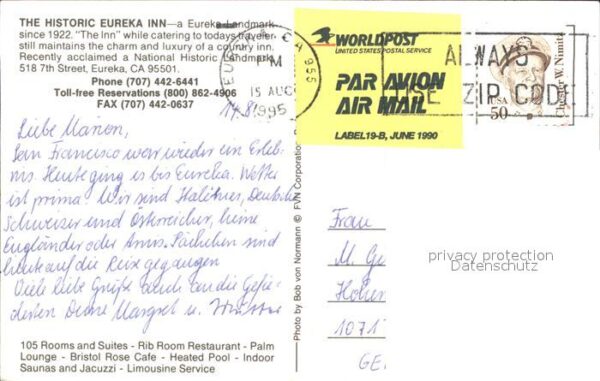 THE HISTORIC EUREKA INN—a Eureka Landmark
since 1922. "The Inn" while catering to todays traveler
still maintains the charm and luxury of a country inn.
Recently acclaimed a National Historic Landmark
518 7th Street, Eureka, CA 95501.
Phone (707) 442-6441
Toll-free Reservations (800) 862-4906
FAX (707) 442-0637
14.8.
Liebe Marion,
San Francisco war wieder ein Erleb-
nis. Heute ging es bis Eureka. Wetter
ist prima. Wir sind Italiener, Deutsche
Schweizer und Österreicher, keine
Engländer oder Amis. Päckchen sind
heute auf die Reise gegangen
Viele liebe Grüße auch an die Gefie-
derten Deine Margret u.
105 Rooms and Suites - Rib Room Restaurant - Palm
Lounge - Bristol Rose Cafe - Heated Pool - Indoor
Saunas and Jacuzzi - Limousine Service
Photo by Bob von Normann © FVN Corporation
CA 955
PM
15 AUG
1995
WORLDPOST
UNITED STATES POSTAL SERVICE
PAR AVION
AIR MAIL
LABEL 19-B, JUNE 1990
ALWAYS
USE ZIP CODE
Chester W. Nimitz
USA
50
Frau
M. Ge
1071
GE
privacy protection
Datenschutz